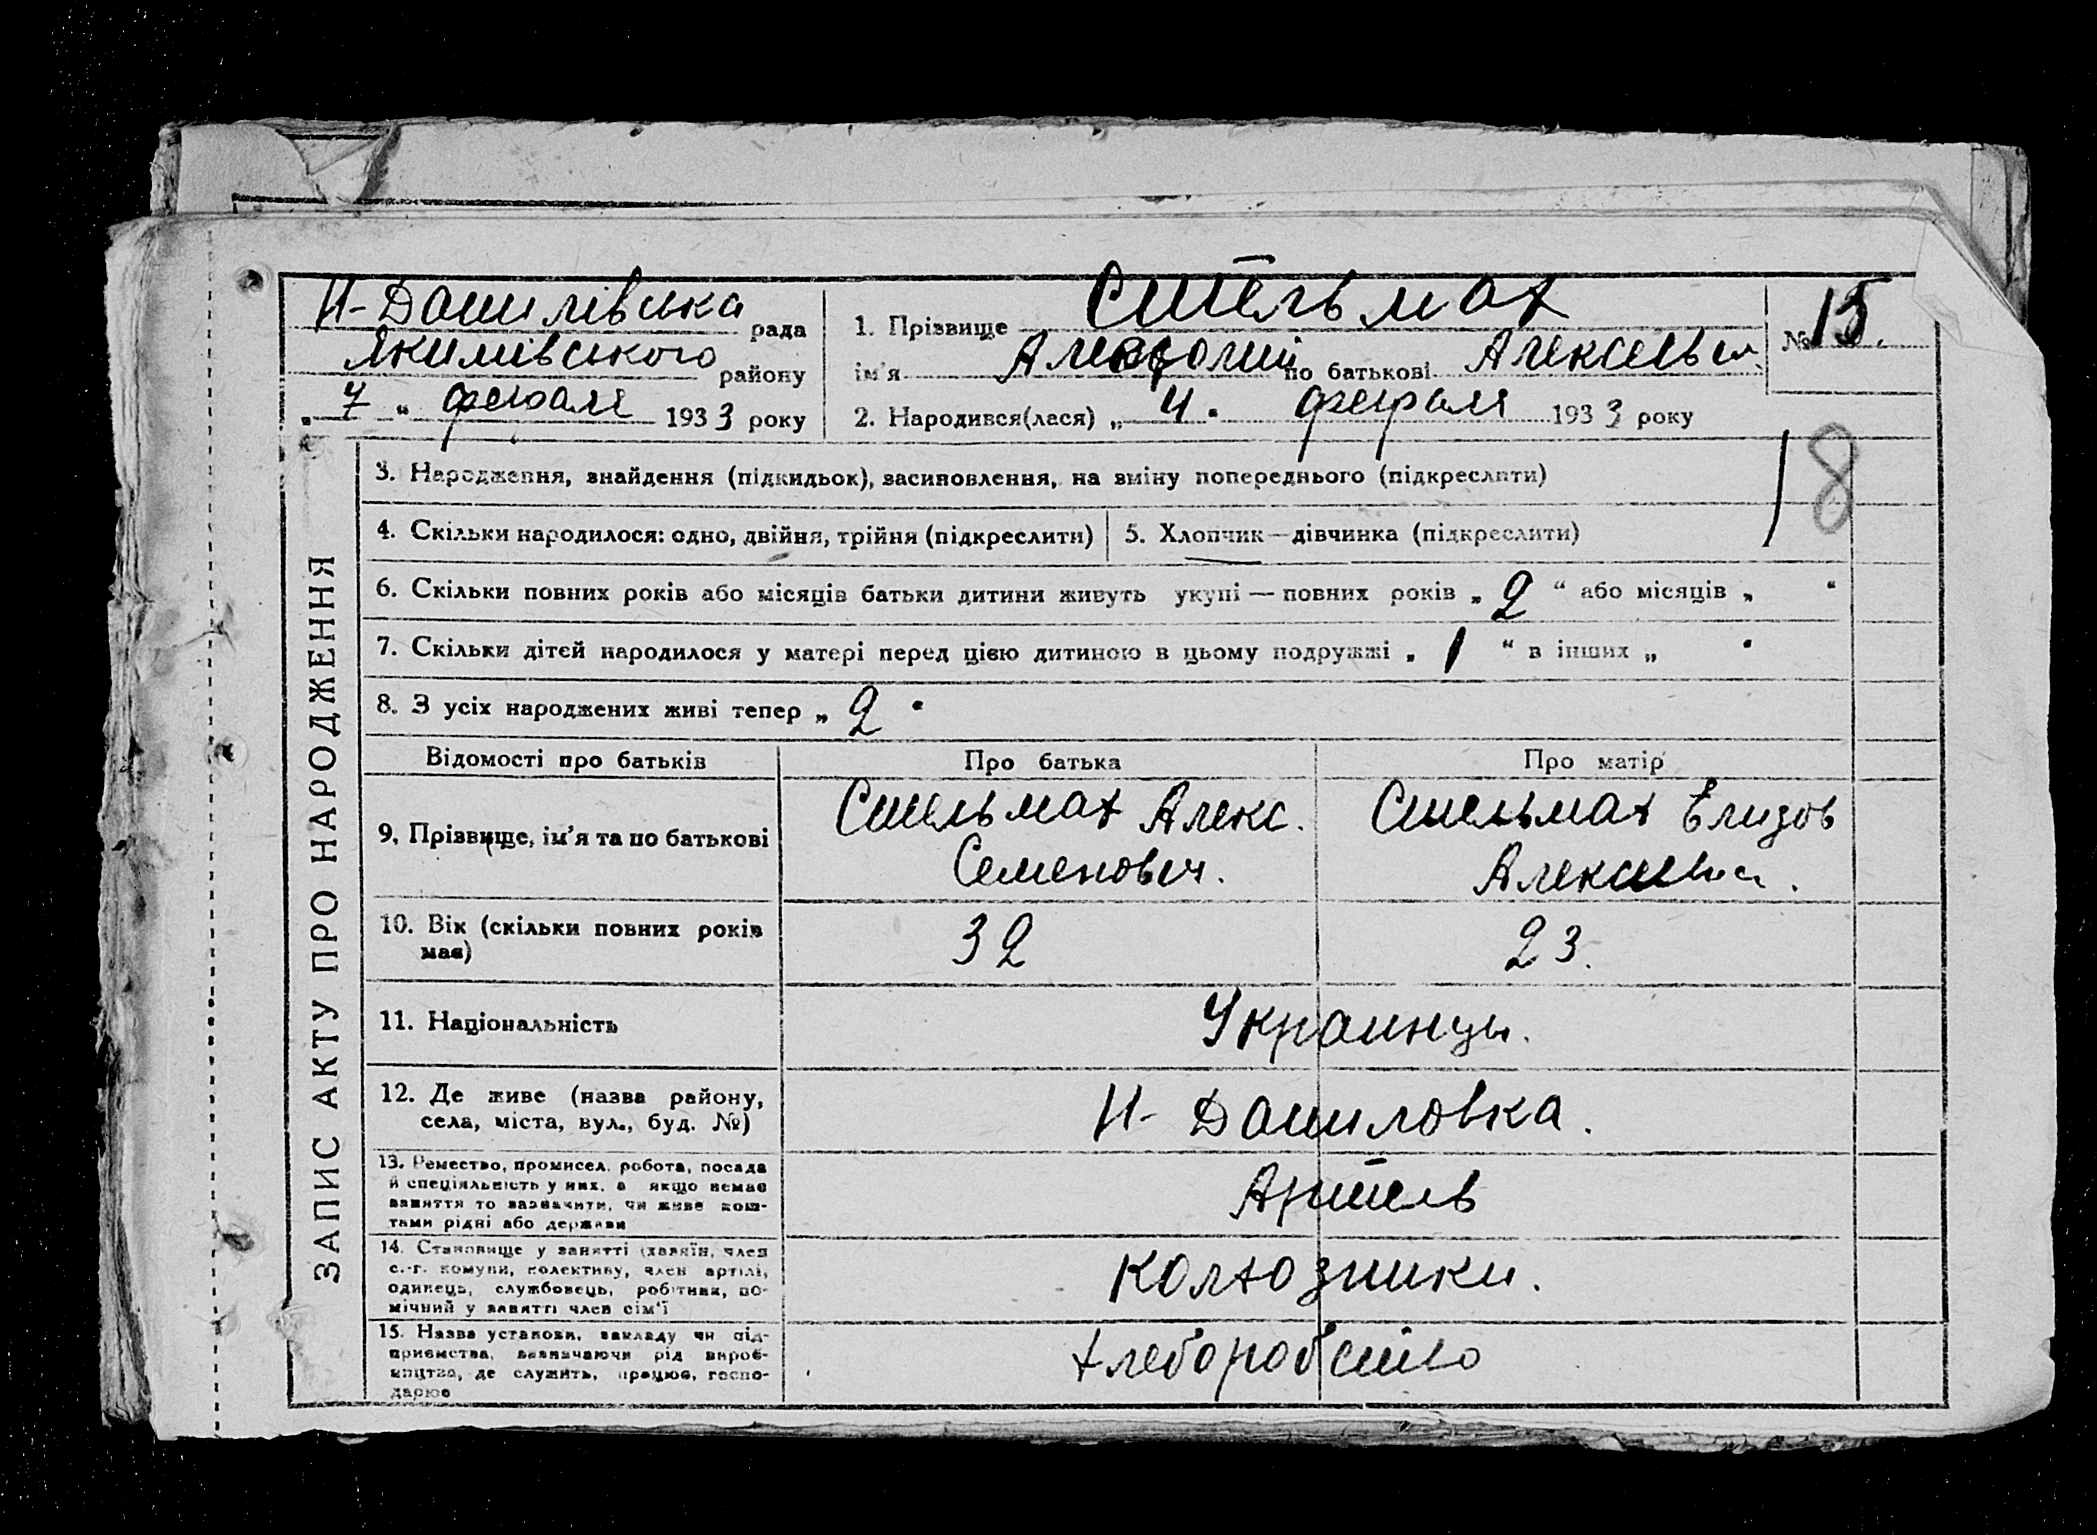 Н-Данилівська рада
Якимівського району
„ 7 “ февраля 1933 року
1. Прізвище Стельмах
ім'я по батькові Алексеевич
№ 15.
2. Народився(лася) „ 4 “ февраля 1933 року
18
ЗАПИС АКТУ ПРО НАРОДЖЕННЯ
3. Народження, знайдення (підкидьок), засиновлення, на зміну попереднього (підкреслити)
4. Скільки народилося: одно, двійня, трійня (підкреслити)
5. Хлопчик—дівчинка (підкреслити)
6. Скільки повних років або місяців батьки дитини живуть укупі — повних років „ 2 “ або місяців „ “
7. Скільки дітей народилося у матері перед цією дитиною в цьому подружжі „ 1 “ в інших „ “
8. З усіх народжених живі тепер „ 2 “
Відомості про батьків
Про батька
Про матір
9. Прізвище, ім'я та по батькові
Стельмах Алекс.
Семенович.
Стельмах Елизов
Алексеевна.
10. Вік (скільки повних років
має)
32
23.
11. Національність
Украинцы.
12. Де живе (назва району,
села, міста, вул., буд. №)
Н- Даниловка.
13. Ремество, промисел, робота, посада
й спеціяльність у них, а якщо немає
заняття то зазначити, чи живе кош-
тами рідні або держави
Артель
14. Становище у занятті (хазяїн, член
с.-г. комуни, колективу, член артілі,
одинець, службовець, робітник, по-
мічний у занятті член сім'ї
колхозники.
15. Назва установи, закладу чи під-
приємства, зазначаючи рід вироб-
ництва, де служить, працює, госпо-
дарює
хлеборобство